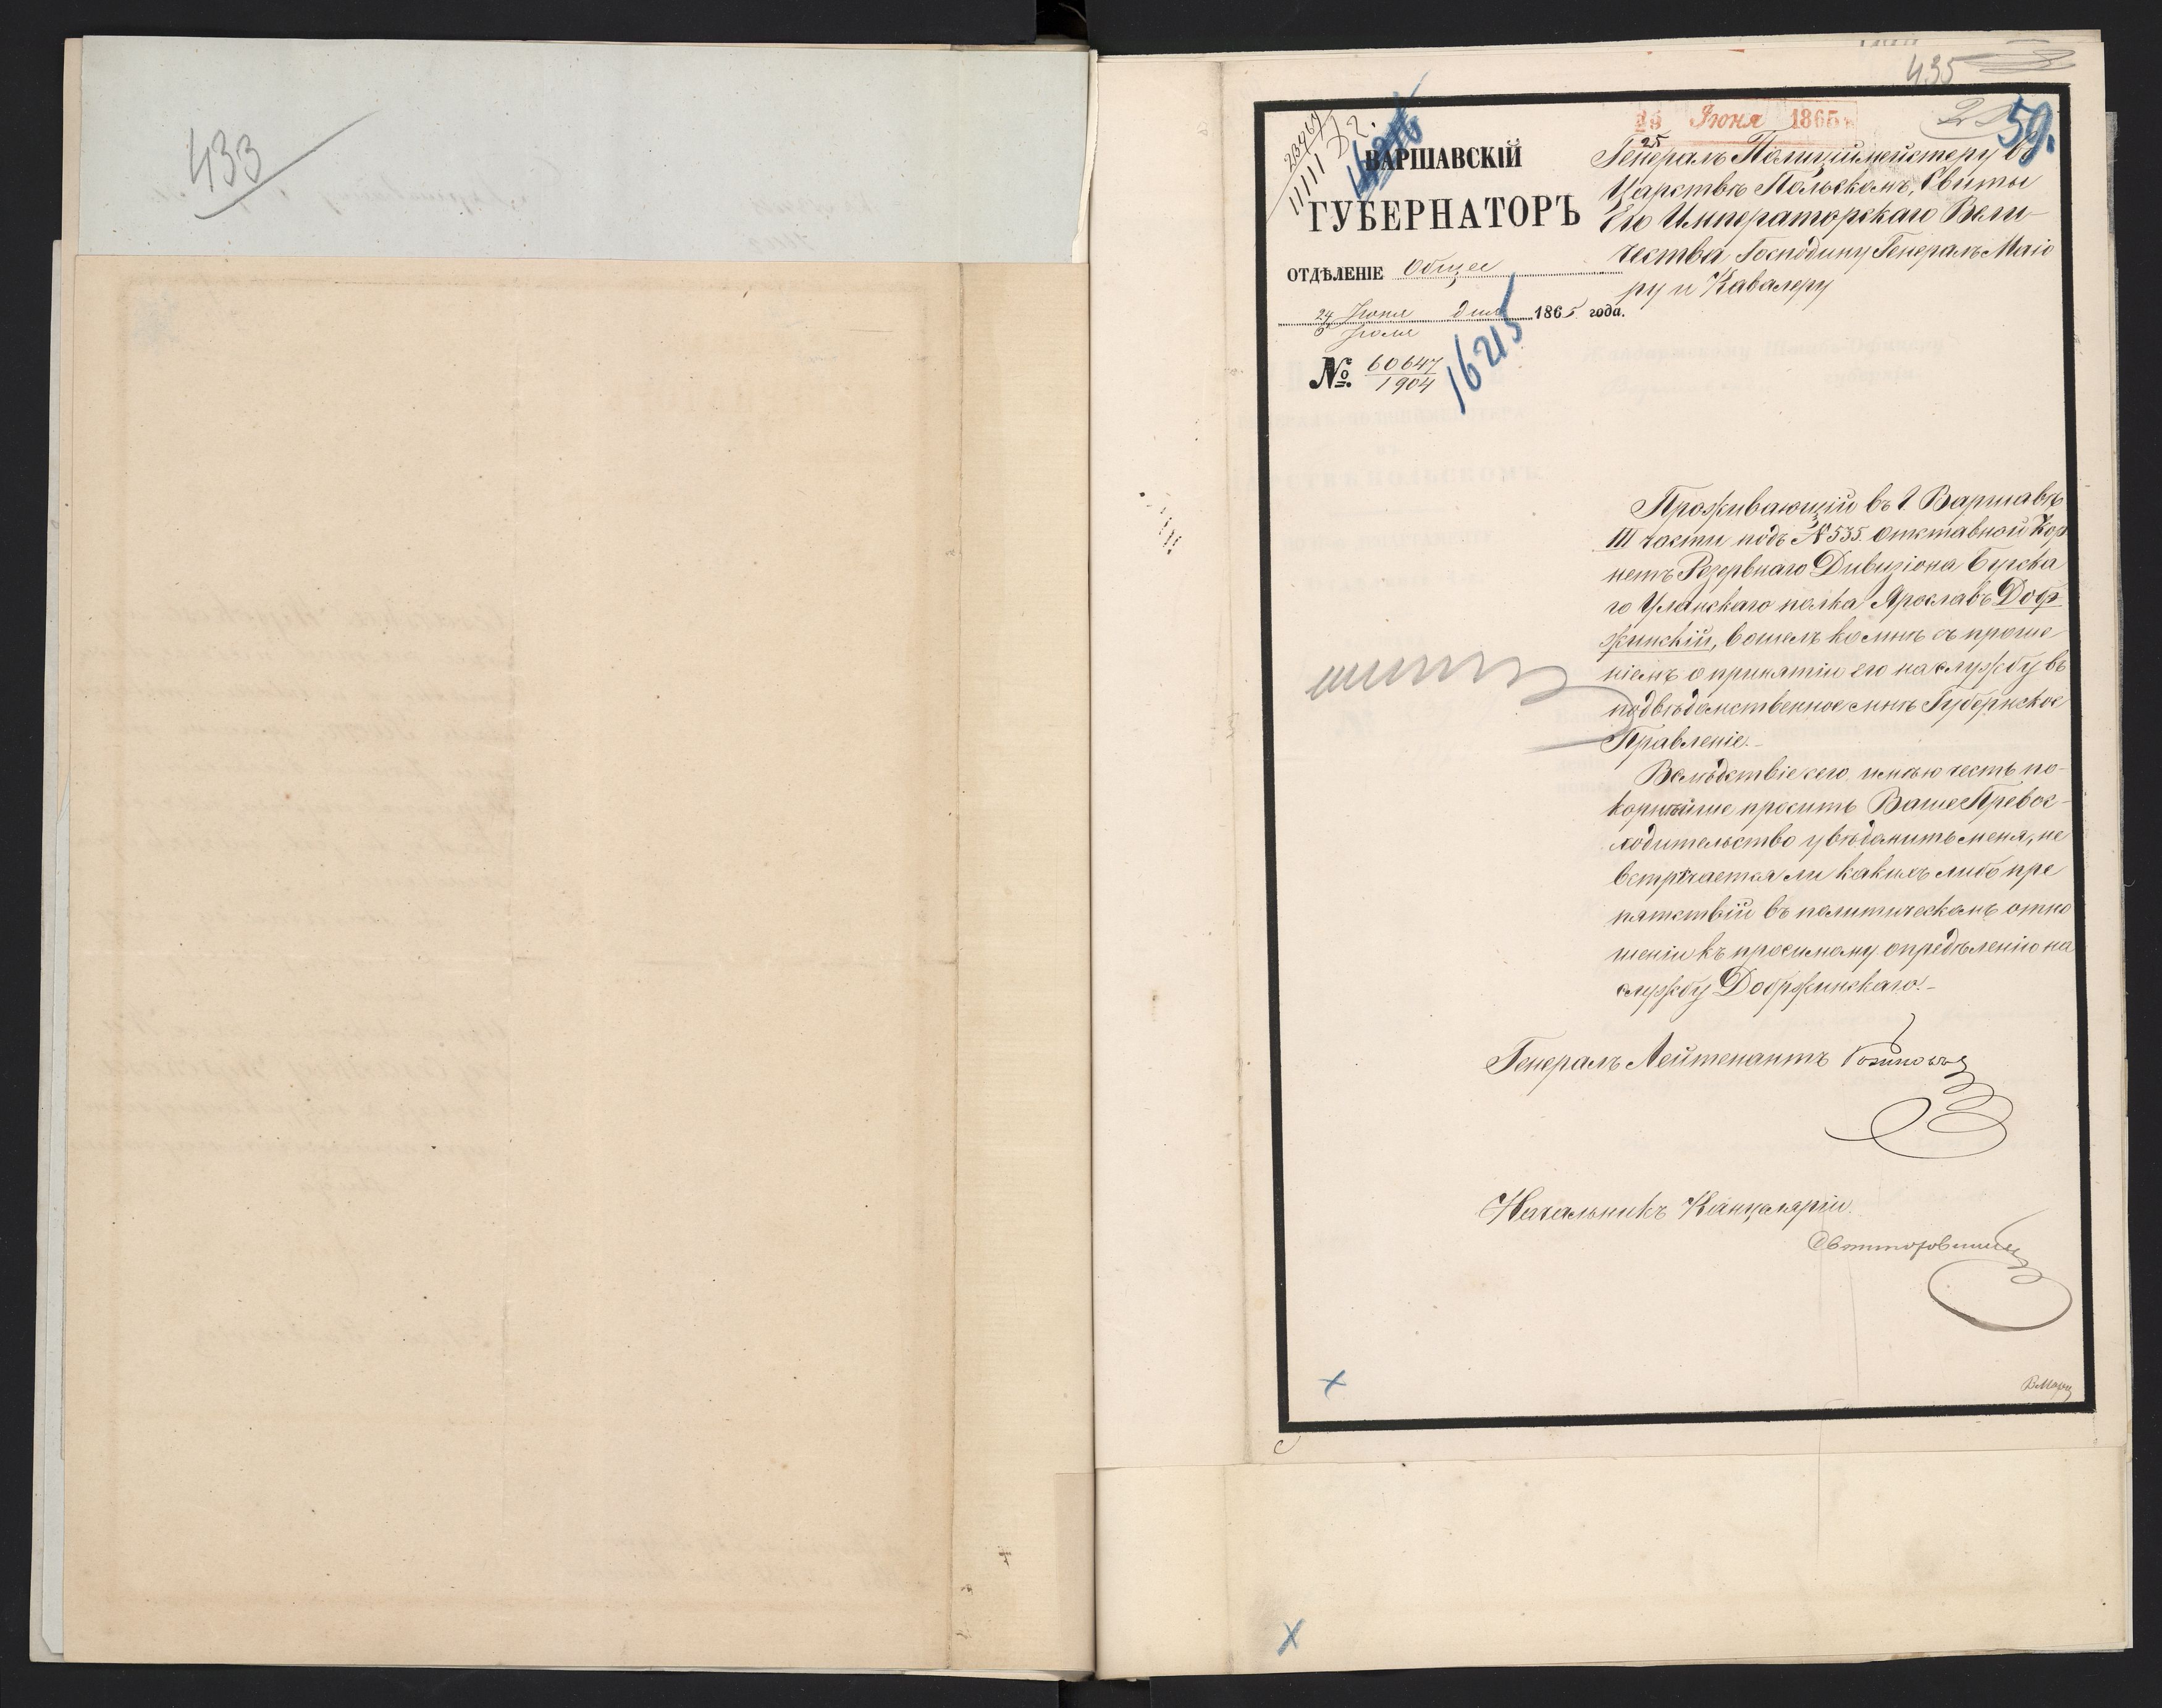 433
435
59.
25 Іюня 1865
25
23767
11111 Д2.
ВАРШАВСКІЙ
ГУБЕРНАТОРЪ
ОТДѢЛЕНІЕ Общее
24 Іюня дня 1865 года.
6 Іюля
№ 60647
1904
16215
Генералъ Полиціймейстеру въ
Царствѣ Польскомъ, Свиты
Его Императорскаго Вели-
чества Господину Генералъ Маіо
ру и Кавалеру
Проживающій въ г. Варшавѣ
III части подъ № 535. отставной Кор
нетъ Резервнаго Дивизіона Бугска
го Уланскаго полка Ярославъ Добр
жинскій, вошелъ ко мнѣ съ проше
ніемъ о принятіи его на службу въ
подвѣдомственное мнѣ Губернское
Правленіе.-
Вслѣдствіе сего имѣю честь по-
корнѣйше просить Ваше Превос-
ходительство увѣдомить меня, не
встрѣчается ли какихъ либо пре
пятствій въ политическомъ отно
шеніи къ просимому опредѣленію на
службу Добржинскаго.-
Генералъ Лейтенантъ
Начальникъ Канцеляріи.